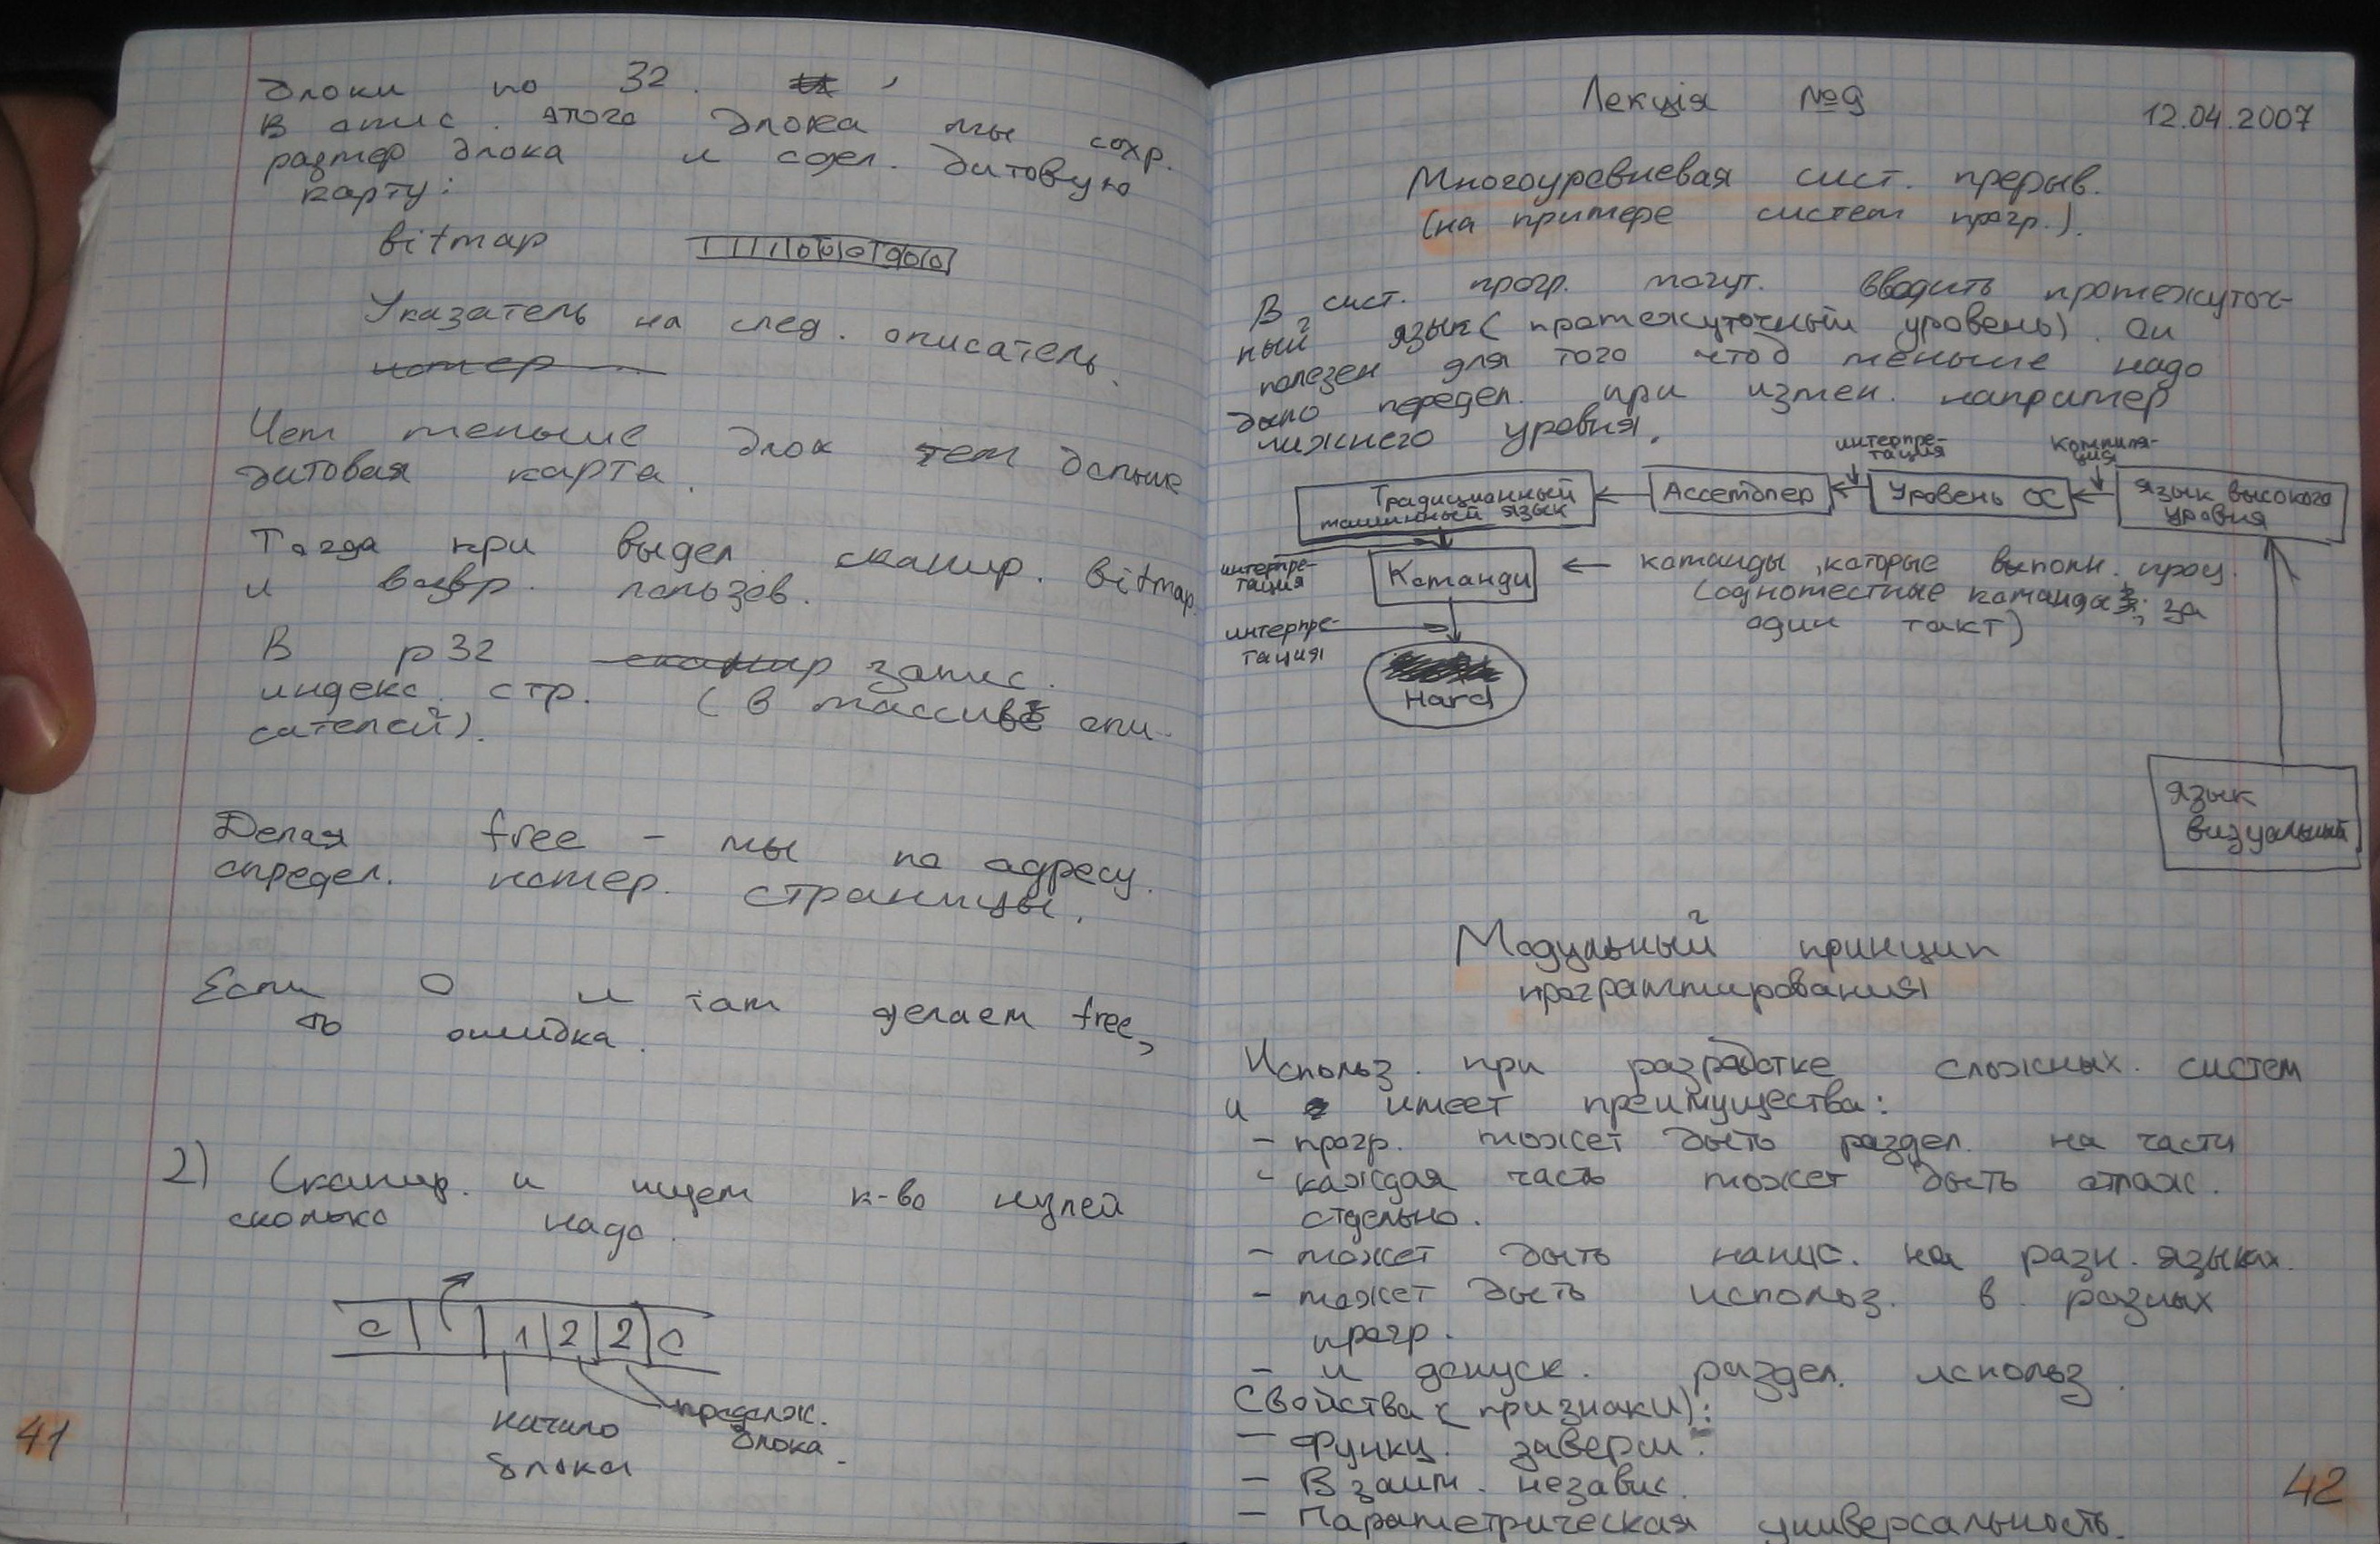 блоки по 32.
В опис. этого блока мы сохр.
размер блока и сдел. битовую
карту:
bitmap
Указатель на след. описатель.
номер
Чем меньше блок тем больше
битовая карта.
Тогда при выдел сканир. bitmap
и возвр. пользов.
В p32 сканир запис.
индекс. стр. (в массиве опи-
сателей).
Делая free - мы по адресу.
определ. номер. страницы.
Если 0 и там делаем free,
то ошибка.
2) Сканир. и ищем к-во нулей
сколько надо.
0 1 2 2 0
начало
блока
продолж.
блока.
41
Лекція №9
12.04.2007
Многоуровневая сист. прерыв.
(на примере систем прогр.).
В сист. прогр. могут. вводить промежуточ-
ный язык (промежуточный уровень). Он
полезен для того чтоб меньше надо
было передел. при измен. например
нижнего уровня.
интерпре-
тация
компиля-
ция
Традиционный
машинный язык
Ассемблер
Уровень ОС
язык высокого
уровня
интерпре-
тация
Команди
команды, которые выполн. проц.
(одноместные команды; за
один такт)
интерпре-
тация
Hard
язык
визуальный
Модульный принцип
программирования
Использ. при разработке сложных. систем
и имеет преимущества:
- прогр. может быть раздел. на части
- каждая часть может быть отлаж.
отдельно.
- может быть напис. на разн. языках.
- может быть использ. в разных
прогр.
- и допуск. раздел. использ.
Свойства (признаки):
- Функц. заверш.
- Взаим. независ.
- Параметрическая универсальность.
42